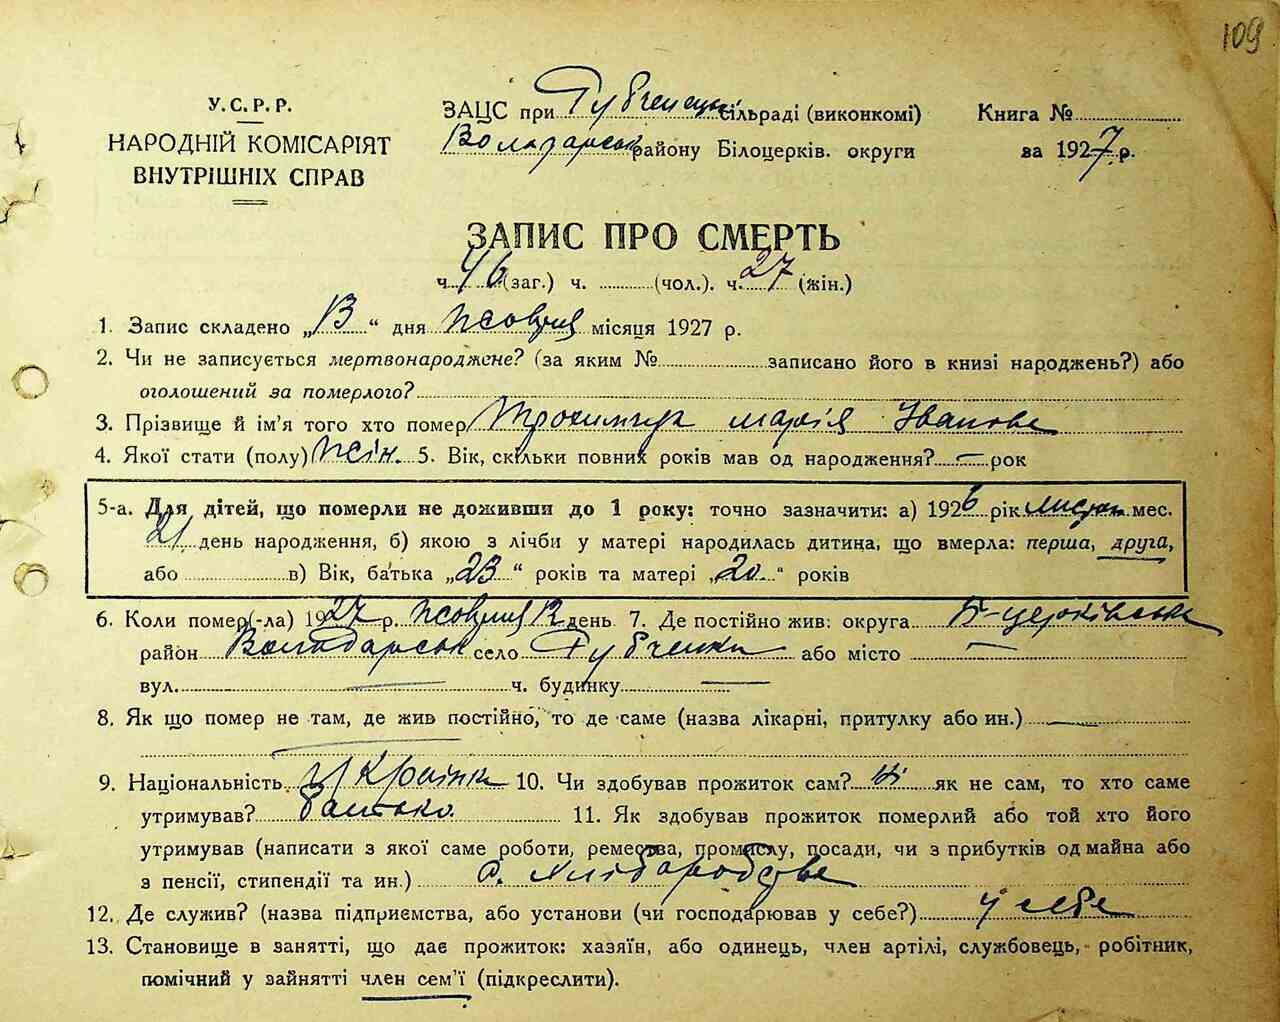 109
У.С.Р.Р.
НАРОДНІЙ КОМІСАРІЯТ
ВНУТРІШНІХ СПРАВ
ЗАЦС при Рубченецьк. сільраді (виконкомі)
Володарськ району Білоцерків. округи
Книга №
за 1927 р.
ЗАПИС ПРО СМЕРТЬ
ч. 46 (заг.) ч. (чол.). ч. 27 (жін.)
1. Запис складено „13“ дня жовтня місяця 1927 р.
2. Чи не записується мертвонароджене? (за яким № записано його в книзі народжень?) або
оголошений за померлого?
3. Прізвище й ім'я того хто помер Трохимчук Марія Іванова
4. Якої стати (полу) жін. 5. Вік, скільки повних років мав од народження? — рок
5-а. Для дітей, що померли не доживши до 1 року: точно зазначити: а) 1926 рік листоп. мес.
21 день народження, б) якою з лічби у матері народилась дитина, що вмерла: перша, друга,
або в) Вік, батька „23“ років та матері „20“ років
6. Коли помер(-ла) 1927 р. жовтня 12 день 7. Де постійно жив: округа Б-церківська
район Володарськ село Рубченки або місто —
вул. — ч. будинку —
8. Як що помер не там, де жив постійно, то де саме (назва лікарні, притулку або ин.) —
9. Національність Українка 10. Чи здобував прожиток сам? ні як не сам, то хто саме
утримував? батько. 11. Як здобував прожиток померлий або той хто його
утримував (написати з якої саме роботи, ремества, промислу, посади, чи з прибутків од майна або
з пенсії, стипендії та ин.) с. хліборобства
12. Де служив? (назва підприємства, або установи (чи господарював у себе?) у себе
13. Становище в занятті, що дає прожиток: хазяїн, або одинець, член артілі, службовець, робітник,
помічний у зайнятті член сем'ї (підкреслити).